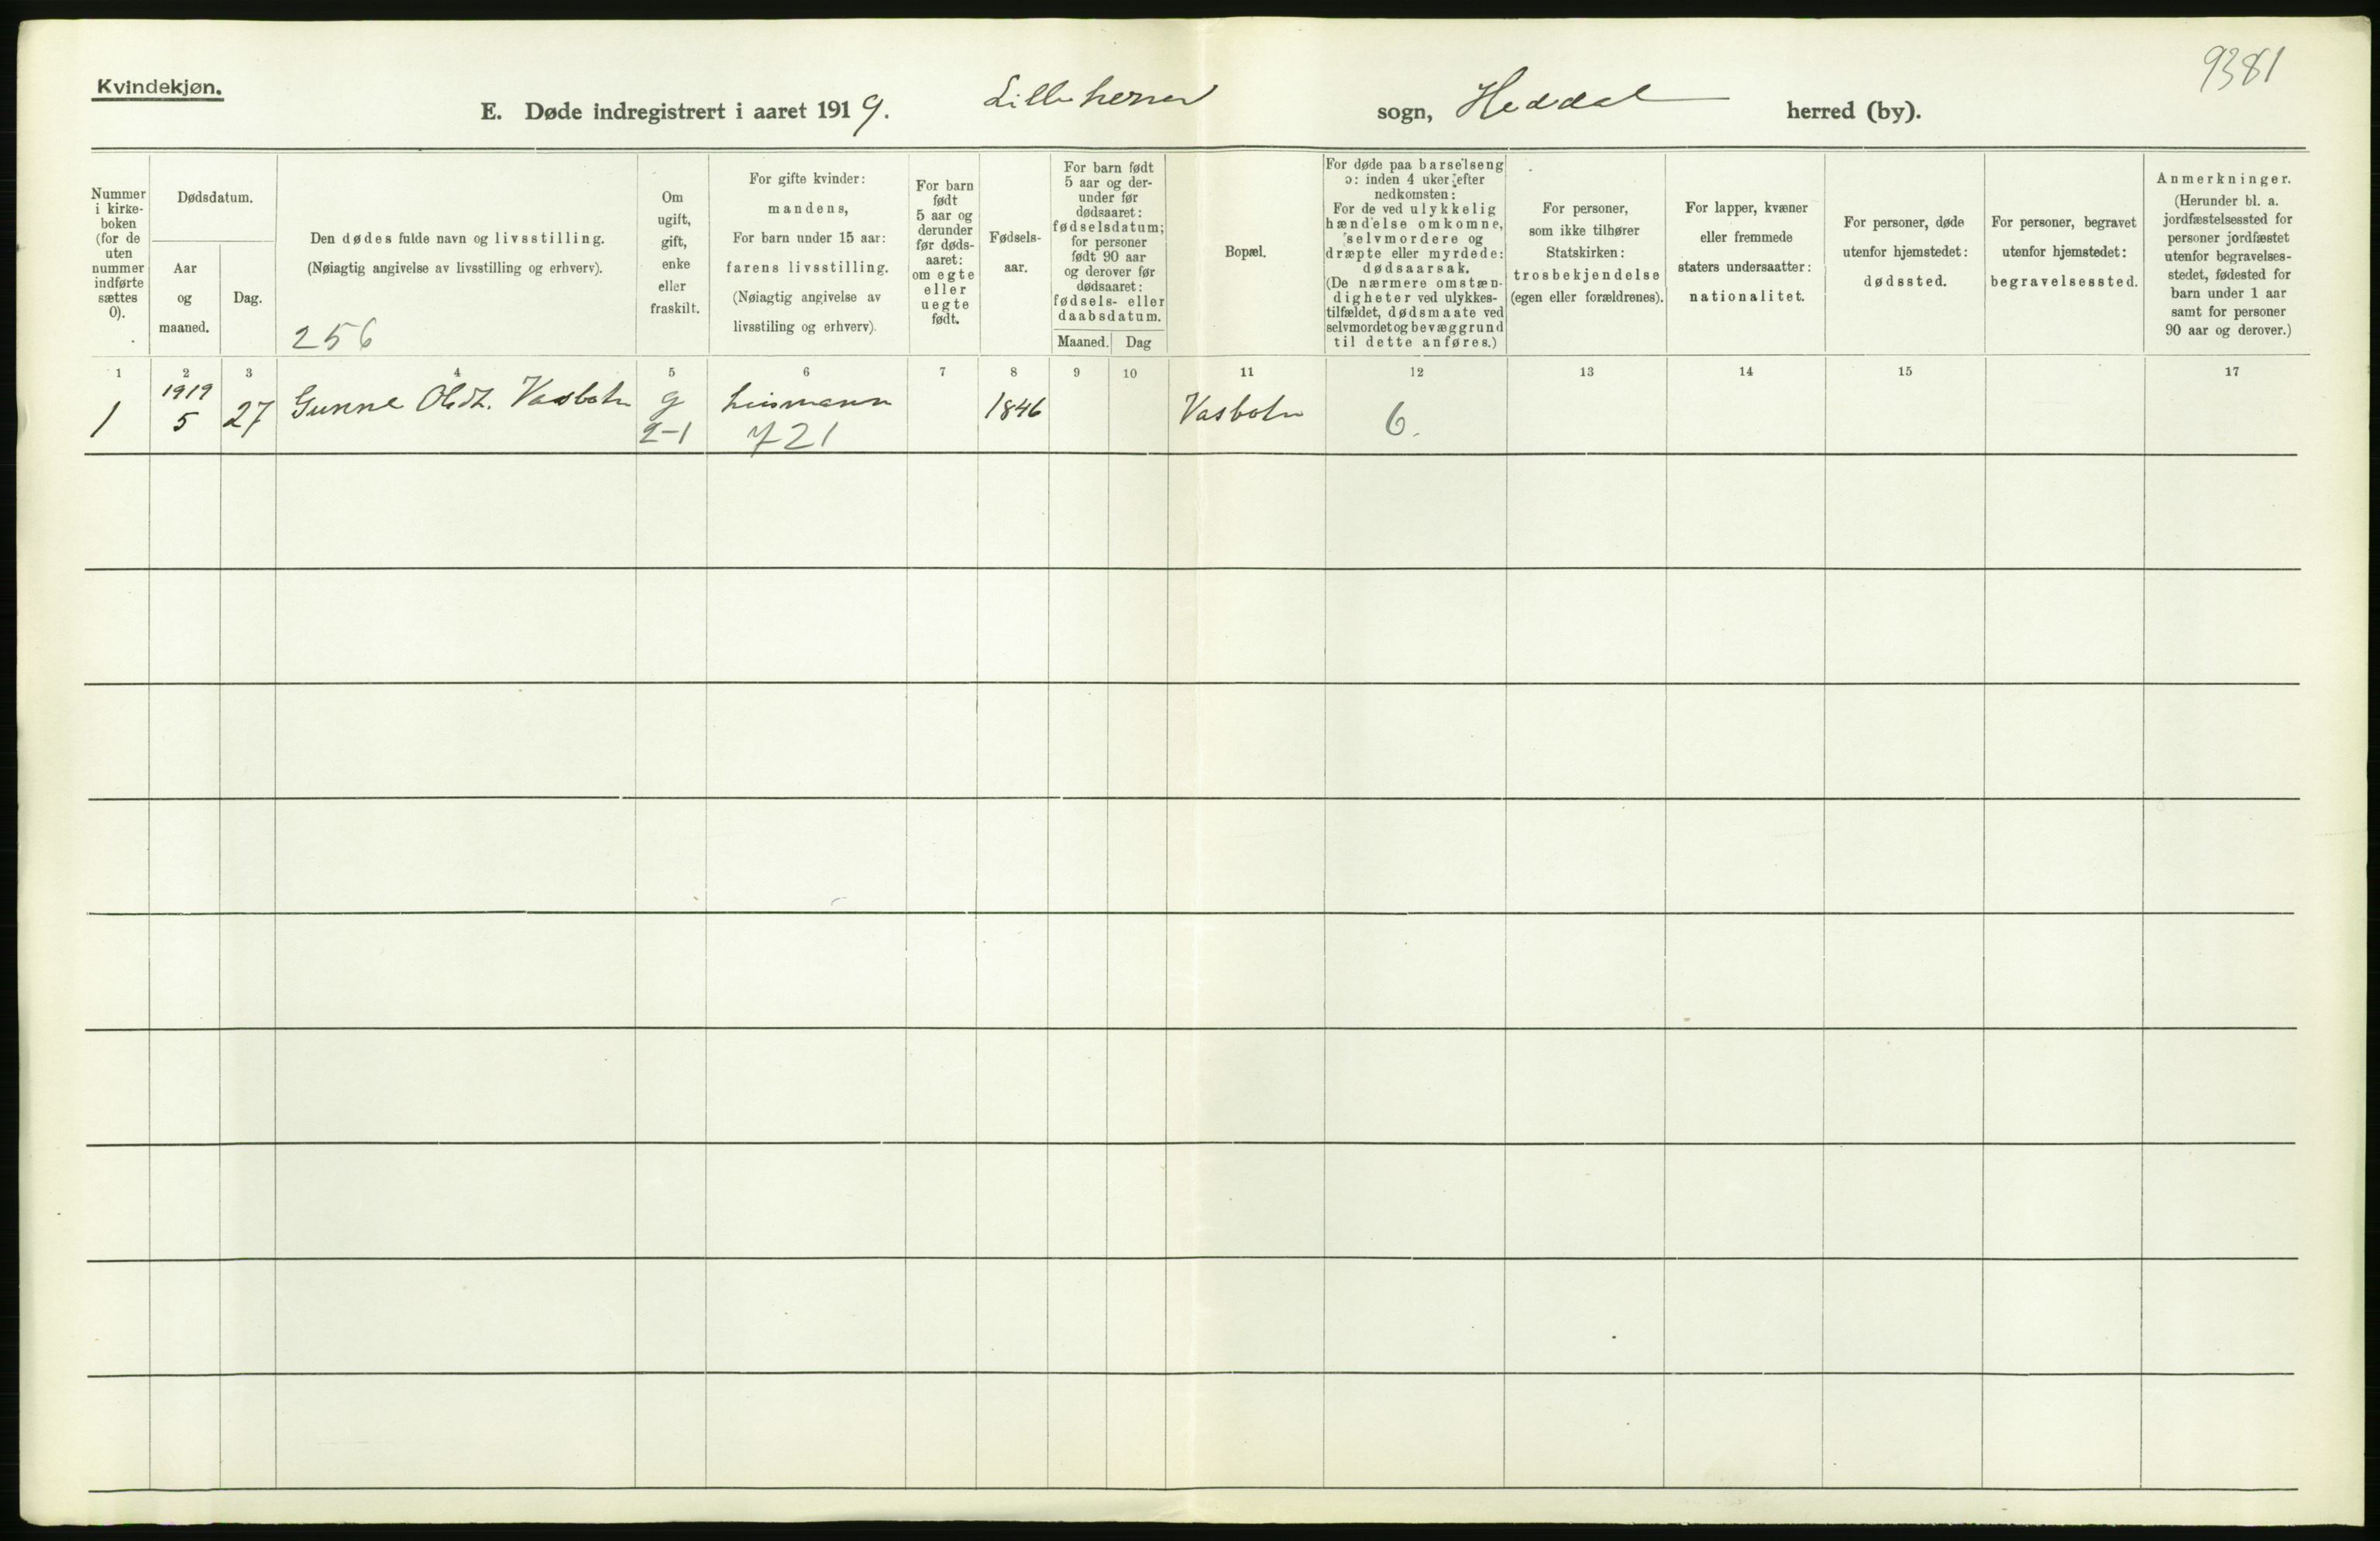 9381
Kvindekjøn.
E. Døde indregistrert i aaret 1919. Lilleherred sogn, Heddal herred (by).
Nummer
i kirke-
boken
(for de
uten
nummer
indførte
sættes
0).
Dødsdatum.
Aar
og
maaned.
Dag.
Den dødes fulde navn og livsstilling.
(Nøiagtig angivelse av livsstilling og erhverv).
256
Om
ugift,
gift,
enke
eller
fraskilt.
For gifte kvinder:
mandens,
For barn under 15 aar:
farens livsstilling.
(Nøiagtig angivelse av
livsstiling og erhverv).
For barn
født
5 aar og
derunder
før døds-
aaret:
om egte
eller
uegte
født.
Fødsels-
aar.
For barn født
5 aar og der-
under før
dødsaaret:
fødselsdatum;
for personer
født 90 aar
og derover før
dødsaaret:
fødsels- eller
daabsdatum.
Maaned. Dag
Bopæl.
For døde paa barselseng
ɔ: inden 4 uker efter
nedkomsten:
For de ved ulykkelig
hændelse omkomne,
selvmordere og
dræpte eller myrdede:
dødsaarsak.
(De nærmere omstæn-
digheter ved ulykkes-
tilfældet, dødsmaate ved
selvmordet og bevæggrund
til dette anføres.)
For personer,
som ikke tilhører
Statskirken:
trosbekjendelse
(egen eller forældrenes).
For lapper, kvæner
eller fremmede
staters undersaatter:
nationalitet.
For personer, døde
utenfor hjemstedet:
dødssted.
For personer, begravet
utenfor hjemstedet:
begravelsessted.
Anmerkninger.
(Herunder bl. a.
jordfæstelsessted for
personer jordfæstet
utenfor begravelses-
stedet, fødested for
barn under 1 aar
samt for personer
90 aar og derover.)
1 2 3 4 5 6 7 8 9 10 11 12 13 14 15 17
1919
1 5 27 Gunne Olsdt. Vasbotn g Leismann 1846 Vasbotn 6.
2-1 721